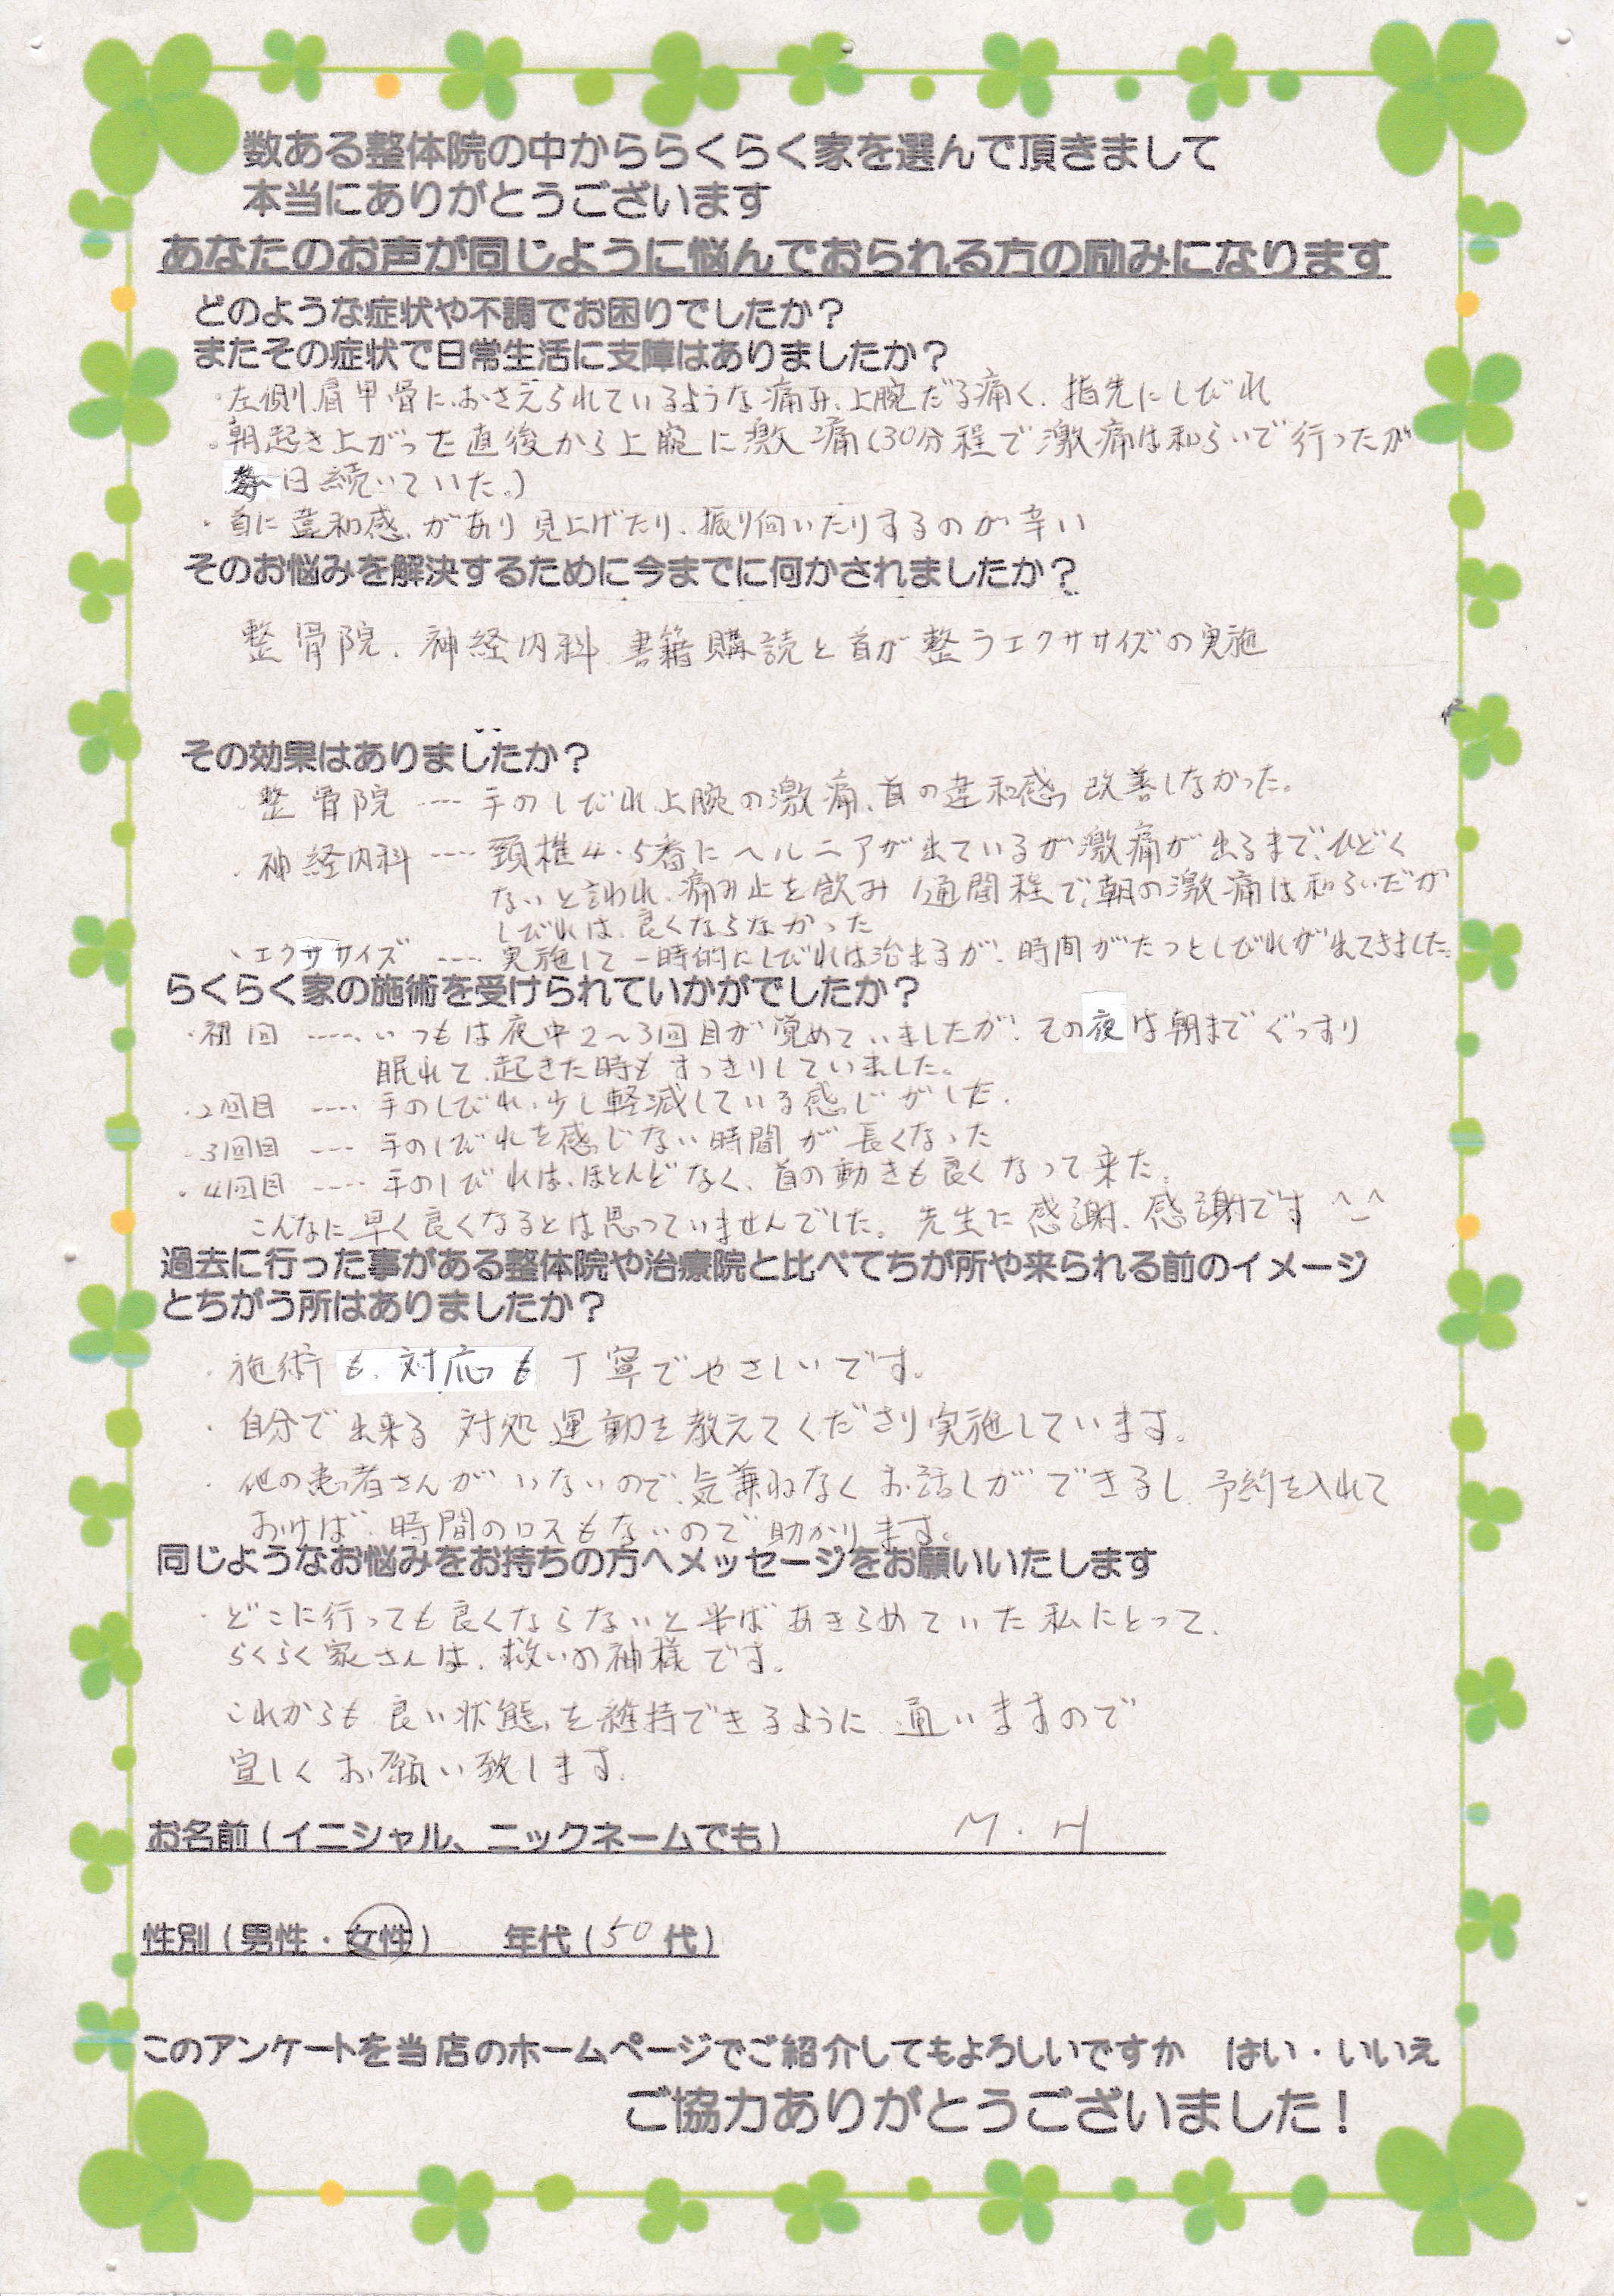 数ある整体院の中かららくらく家を選んで頂きまして
本当にありがとうございます
あなたのお声が同じように悩んでおられる方の励みになります
どのような症状や不調でお困りでしたか？
またその症状で日常生活に支障はありましたか？
・左側肩甲骨におさえられているような痛み、上腕だる痛く、指先にしびれ
・朝起き上がった直後から上腕に激痛（30分程で激痛は和らいで行ったが
数日続いていた。）
・首に違和感があり見上げたり、振り向いたりするのが辛い
そのお悩みを解決するために今までに何かされましたか？
整骨院、神経内科、書籍購読と首が整うエクササイズの実施
その効果はありましたか？
整骨院 ---- 手のしびれ、上腕の激痛、首の違和感、改善しなかった。
・神経内科 ---- 頸椎4・5番にヘルニアが出ているが激痛が出るまで、ひどく
ないと言われ、痛み止を飲み1週間程で、朝の激痛は和らいだが
しびれは、良くならなかった
・エクササイズ ---- 実施して一時的にしびれは治まるが、時間がたつとしびれが出てきました。
らくらく家の施術を受けられていかがでしたか？
・初回 ---- いつもは夜中2〜3回目が覚めていましたが、その夜は朝までぐっすり
眠れて、起きた時もすっきりしていました。
・2回目 ---- 手のしびれ、少し軽減している感じがした。
・3回目 ---- 手のしびれを感じない時間が長くなった
・4回目 ---- 手のしびれは、ほとんどなく、首の動きも良くなって来た。
こんなに早く良くなるとは思っていませんでした。先生に感謝、感謝です ^_^
過去に行った事がある整体院や治療院と比べてちが所や来られる前のイメージ
とちがう所はありましたか？
・施術も、対応も丁寧でやさしいです。
・自分で出来る対処運動を教えてくださり実施しています。
・他の患者さんがいないので、気兼ねなくお話しができるし、予約を入れて
おけば、時間のロスもないので助かります。
同じようなお悩みをお持ちの方へメッセージをお願いいたします
・どこに行っても良くならないと半ばあきらめていた私にとって、
らくらく家さんは、救いの神様です。
これからも良い状態を維持できるように通いますので
宜しくお願い致します。
お名前（イニシャル、ニックネームでも） M.H
性別（男性・女性） 年代（50代）
このアンケートを当店のホームページでご紹介してもよろしいですか　はい・いいえ
ご協力ありがとうございました！